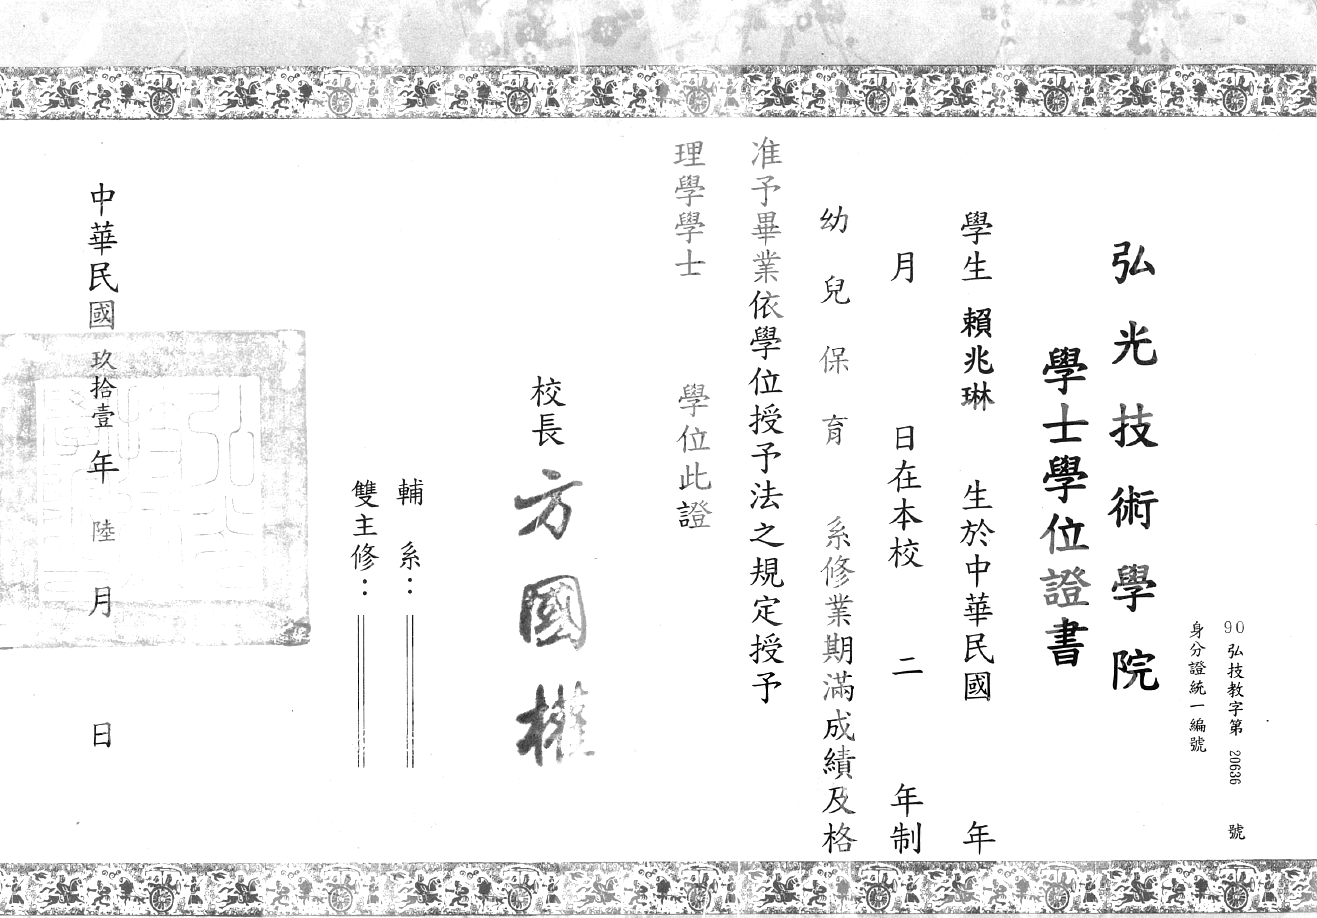 90弘技教字第 20636 號
身分證統一編號
弘光技術學院
學士學位證書
學生 賴兆琳 生於中華民國 年
月 日在本校 二 年制
幼兒保育 系修業期滿成績及格
准予畢業依學位授予法之規定授予
理學學士 學位此證
校長 方國權
輔系：
雙主修：
中華民國 玖拾壹 年 陸 月 日